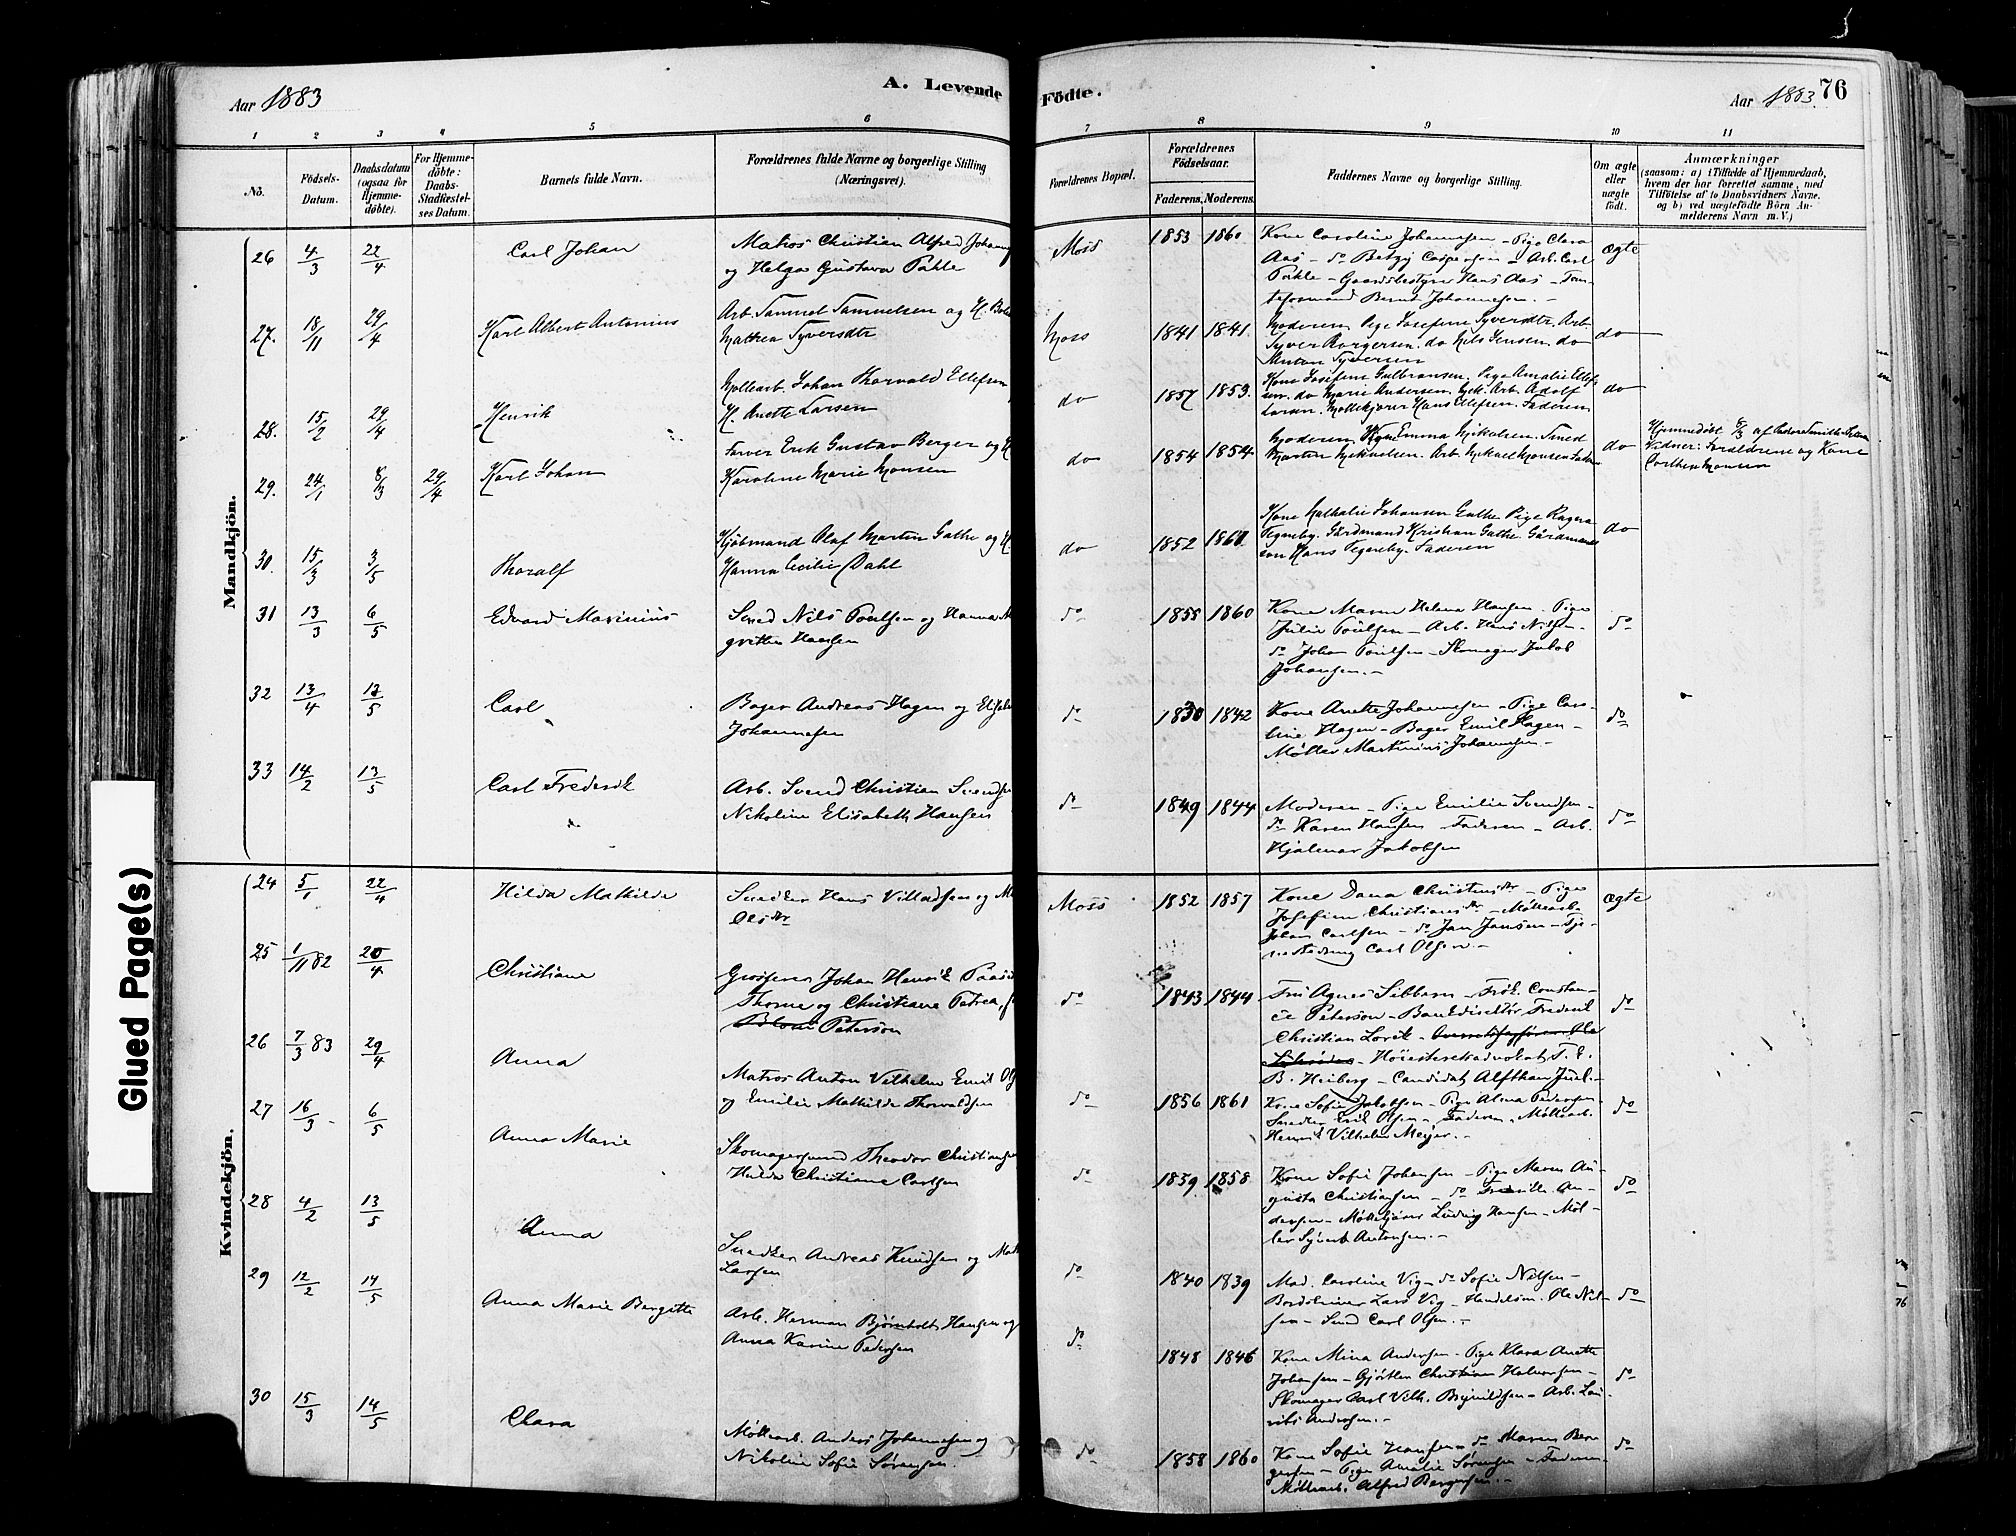 Aar 1883
A. Levende
Födte.
Aar 1883.
76
1 2 3 4 5 6 7 8 9 10 11
No.
Födsels-
Datum.
Daabsdatum
(ogsaa for
Hjemme-
döbte).
For Hjemme-
döbte:
Daabs-
Stadfestel-
ses Datum.
Barnets fulde Navn.
Forældrenes fulde Navne og borgerlige Stilling
(Næringsvei).
Forældrenes Bopæl.
Forældrenes
Födselsaar.
Faderens. Moderens.
Faddernes Navne og borgerlige Stilling.
Om ægte
eller
uægte
födt.
Anmærkninger
(saasom: a) i Tilfælde af Hjemmedaab,
hvem der har forrettet samme, med
Tilföielse af to Daabsvidners Navne.
og b) ved uægtefödte Börn An-
melderens Navn m. V.)
Mandkjön.
26 4/3 22/4 Carl Johan
Matros Christian Alfred
og Helga Gustava
Moss 1853 1860
Kone Caroline Johannesen – Pige Clara
Aas – do Betzy – Arb. Carl
– Gaardsbestyrer Hans Aas –
Bernt Johannesen. –
ægte
27. 18/11 29/4 Karl Albert Antonius
Arb. Samuel Samuelsen og H.
Mathea Syversdtr
Moss 1841 1841.
Moderen Pige Josefine Syversdtr. Arb.
Syver Borgersen. do Nils Jensen. do
Anton Syversen
do
28. 15/2 29/4 Henrik
Mollearb. Johan Thorvald Ellefsen
H. Anette Larsen
do 1857 1859.
Kone Josefine Gulbransen. Pige Amalie Ellef
sen. do Marie Andersen. Arb. Adolf
Larsen. Hans Ellefsen. Faderen
do
29. 24/1 8/3 29/4 Karl Johan
Farver Erik Gustav Berger og H
Karoline Marie Monsen
do 1854 1854.
Moderen Kone Emma Mikalsen. Smed
Martin Mikalsen. Arb. Mikael Monsen
do
Hjemmedöbt 8/3 af
Vidner: Forældrene og Kone
Monsen
30. 15/3 3/5 Thoralf
Kjöbmand Olaf Martin Gathe og H.
Hanna Cecilie Dahl
do 1852 1860.
Kone Mathilie Johansen Gathe Pige Ragna
Tegneby. Gårdmand Kristian Gathe. Gårdmands
sön Hans Tegneby. Faderen
do
31 13/3 6/5 Edvard Marinius
Smed Nils Poulsen og Hanna
grethe Hansen
do 1855 1860
Kone Maren Helena Hansen – Pige
Julie Poulsen – Arb. Hans Nilsen –
do Johan Poulsen – Skomager Jakob
Johansen. –
do
32 13/4 13/5 Carl
Bager Andreas Hagen og
Johannesen
do 1830 1842
Kone Anette Johannesen – Pige Caro-
line Hagen – Bager Emil Hagen –
Møller Martinius Johannesen. –
do
33 14/2 13/5 Carl Frederik
Arb. Svend Christian Svendsen
Nikoline Elisabeth Hansen
do 1849 1844
Moderen – Pige Emilie Svendsen –
do Karen Hansen – Faderen – Arb.
Hjalmar Jakobsen
do
Kvindekjön.
24 5/1 22/4 Hilda Mathilde
Snedker Hans Villadsen og
Olsdtr
Moss 1852 1857
Kone Dana Christensdtr – Pige
Josefine Christiansdtr – Møllearb.
Johan Carlsen – do Jan Jansen – Tje-
Carl Olsen. –
ægte
25 1/11 82 20/4 Christiane
Grosserer Johan Henrik
Thorne og Christiane Petrea
Peterson
do 1843 1844
Fru Agnes Sibbern – Frøk. Constan-
ce Peterson – Bankdirektør Frederik
Christian Lorck –
– Höiesteretsadvokat
B. Heiberg – Candidat Juel. –
do
26 7/3 83 29/4 Anna
Matros Anton Vilhelm Emil
og Emilie Mathilde Thorvaldsen
do 1856 1861
Kone Sofie Jakobsen – Pige Alma Pedersen –
Snedker Erik Olsen – Faderen – Møllearb.
Henrik Vilhelm Meijer. –
do
27 16/3 6/5 Anna Marie
Skomagersvend Theodor Christiansen
Hilda Christiane Carlsen
do 1839 1858
Kone Sofie Johansen – Pige Maren Au-
gusta Christiansen – do An-
dersen – Møllekjører Ludvig Hansen – Møl-
ler Syvert Antonsen. –
do
28 4/2 13/5 Anna
Snedker Andreas Knudsen og
Larsen
do 1840 1839
Mad. Caroline Vig – do Sofie Nilsen –
Lars Vig – Handelsm. Ole Nil-
sen – Smed Carl Olsen. –
do
29 12/2 14/5 Anna Marie Bergitte
Arb. Herman Bjørnholdt Hansen og
Anna Karine Pedersen
do 1848 1846
Kone Mina Andersen – Pige Klara Anette
Johansen – Gjørtler Christian Halvorsen –
Skomager Carl Vilh. Brynildsen – Arb. Lau-
rits Andersen. –
do
30 15/3 14/5 Clara
Møllearb. Anders Johannesen og
Nikoline Sofie Sørensen.
do 1858 1860
Kone Sofie Hansen – do Maren Bør-
gersen – Pige Amalie Sørensen – Faderen
Møllearb. Alfred Børgersen. –
do
Glued Page(s)
76